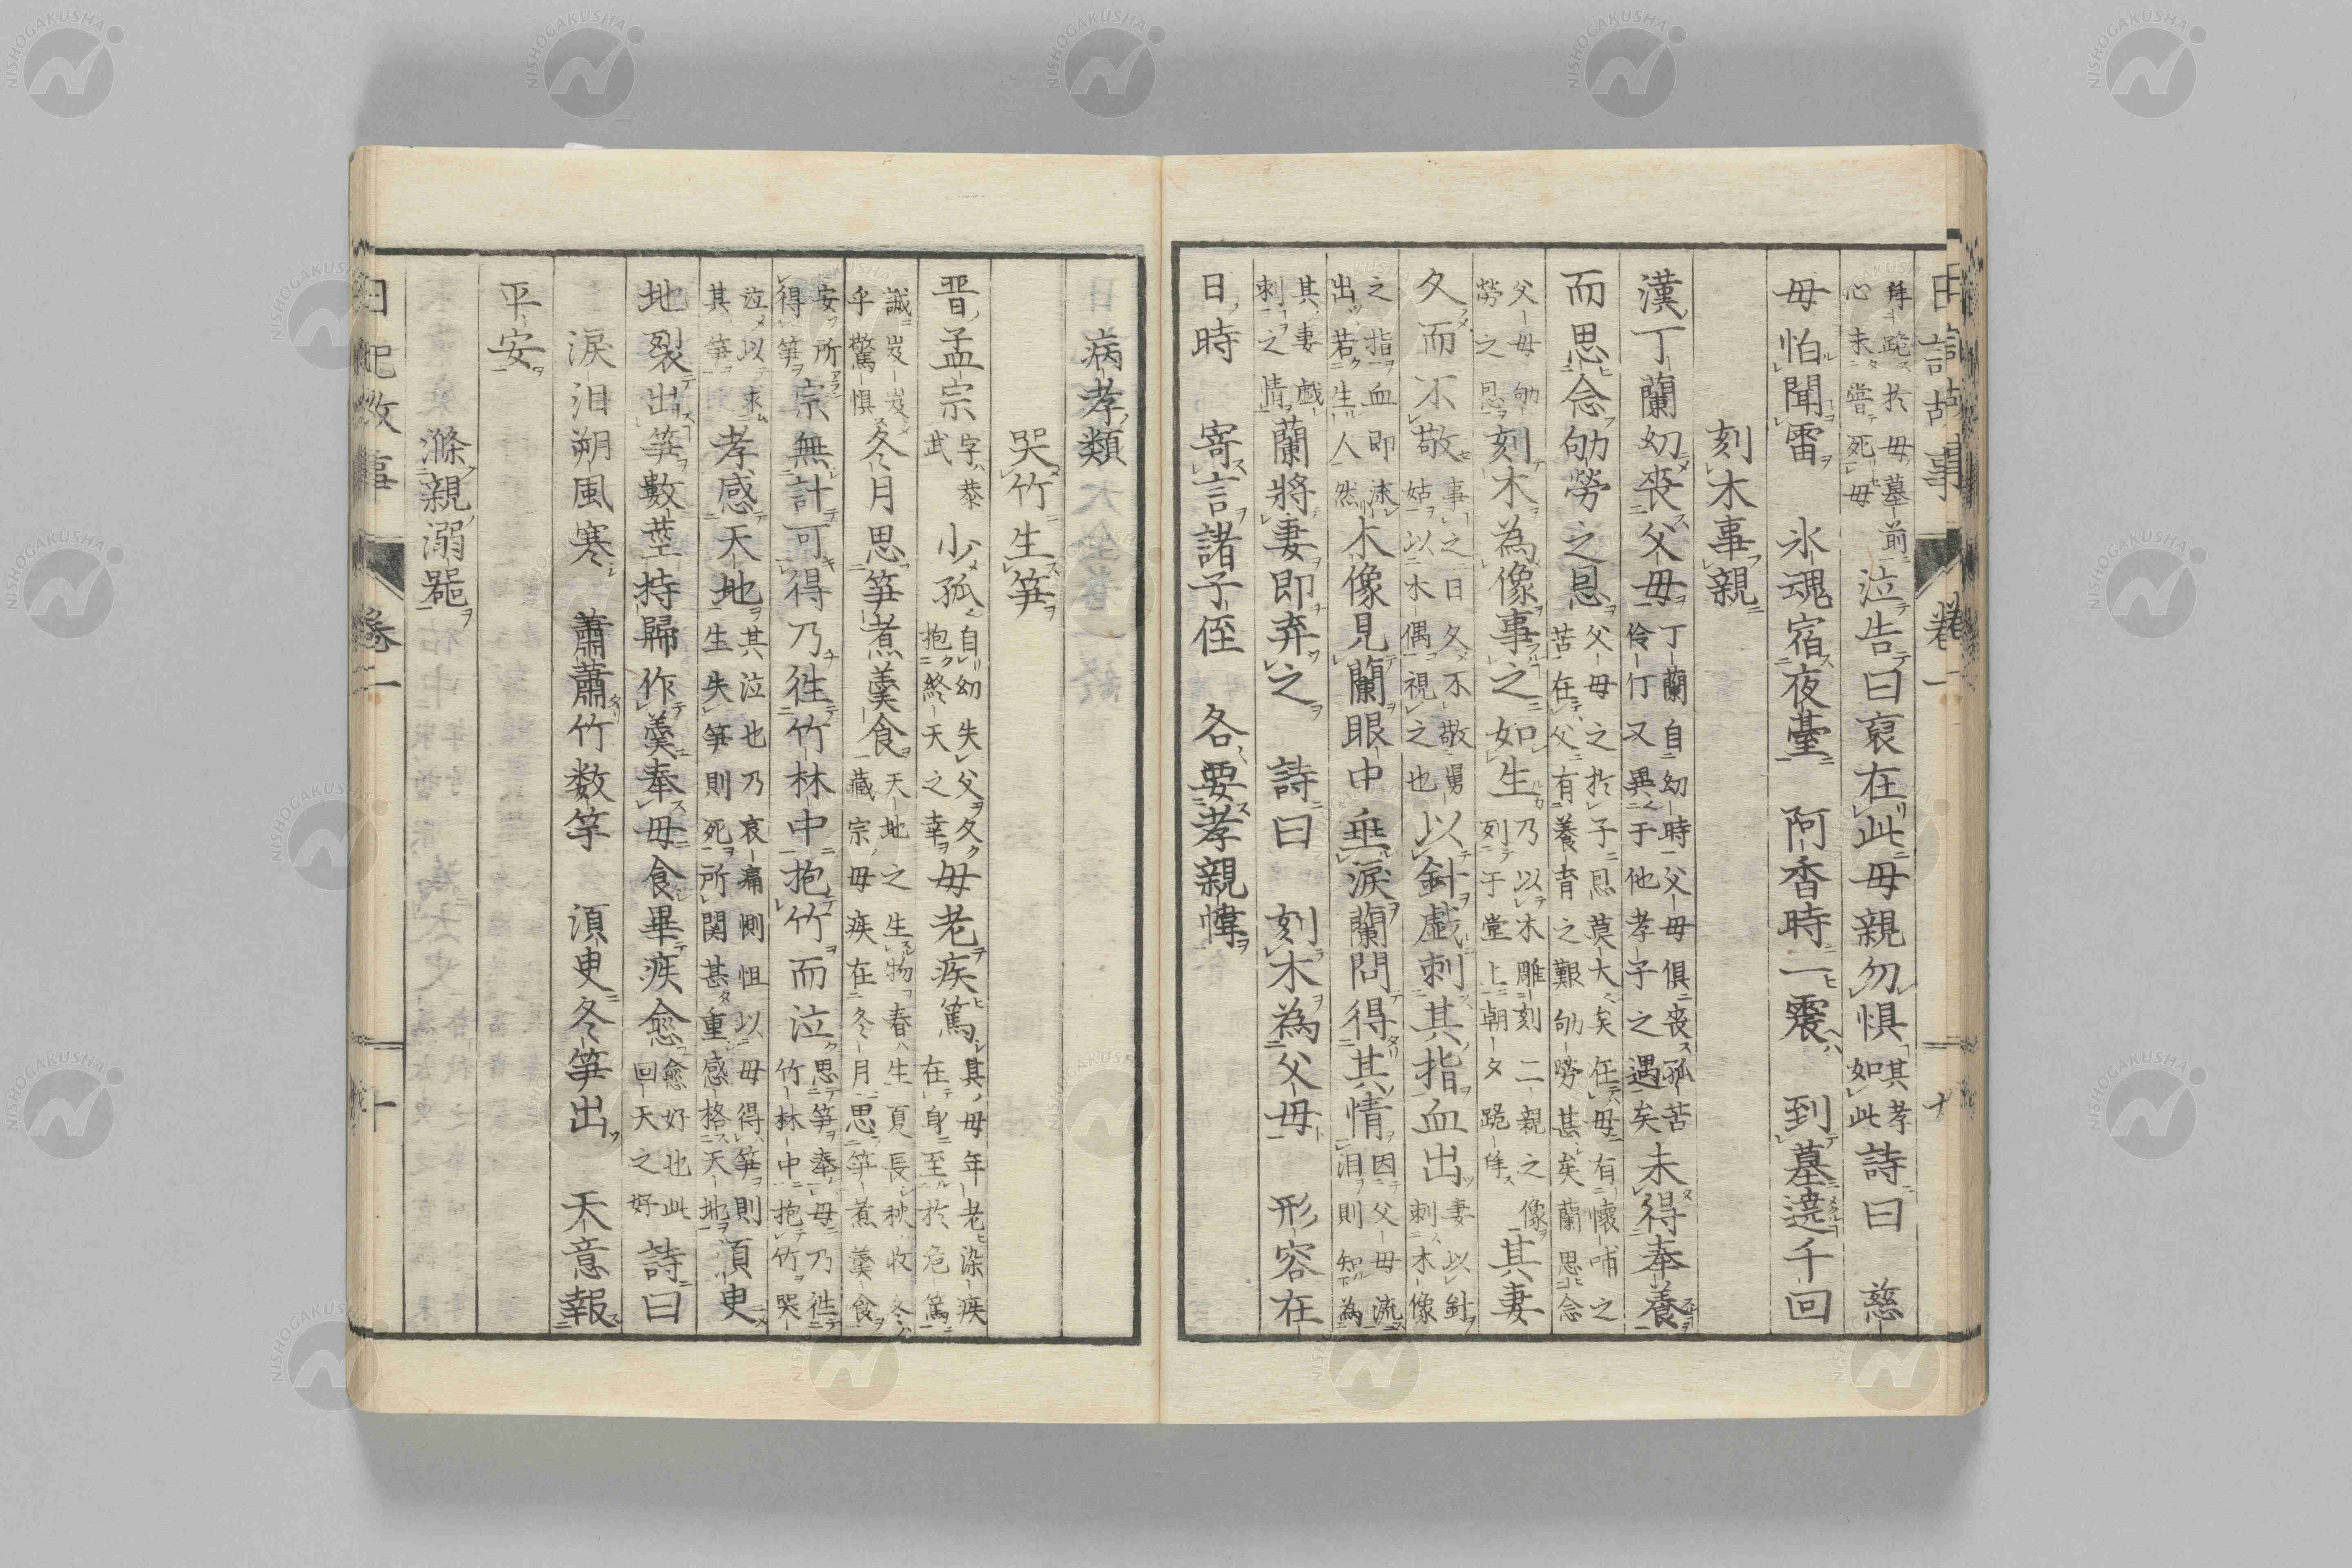 日記故事 卷一 十
拜跪於母墓前心未嘗死母泣告曰哀在此母親勿惧其孝如此詩曰 慈
母怕聞雷 氷魂宿夜臺 阿香時一震 到墓遶千回
刻木事親
漢丁蘭幼喪父母丁蘭自幼時父母俱喪孤苦伶仃又異于他孝子之遇矣未得奉養
而思念劬勞之恩父母之於子恩莫大矣任母有懷哺之苦在父有養育之艱劬勞甚矣蘭思念
父母劬勞之恩刻木為像事之如生乃以木雕刻二親之像列于堂上朝夕跪拜其妻
久而不敬事之日久不敬舅姑以木偶視之也以針戲刺其指血出妻以針刺木像
之指血即流出若生人然木像見蘭眼中垂淚蘭問得其情因父母流泪則知為
其妻戲刺之情蘭將妻即弃之 詩曰 刻木為父母 形容在
日時 寄言諸子侄 各要孝親幃
病孝類
哭竹生笋
晋孟宗字恭武少孤自幼失父久抱終天之幸母老疾篤其母年老染疾在身至於危篤
誠岌岌乎驚惧冬月思笋煮羹食天地之生物春生夏長秋收冬藏宗母疾在冬月思笋煮羹食
安所得笋宗無計可得乃徃竹林中抱竹而泣思笋奉母乃徃竹林中抱竹哭
泣以求其笋孝感天地其泣也乃哀痛惻怛以母得笋則生失笋則死所関甚重感格天地須臾
地裂出笋數莖持歸作羹奉母食畢疾愈愈好也此回天之好詩曰
淚泪朔風寒 蕭蕭竹数竿 須臾冬笋出 天意報
平安
滌親溺器
日記故事 卷一 十一